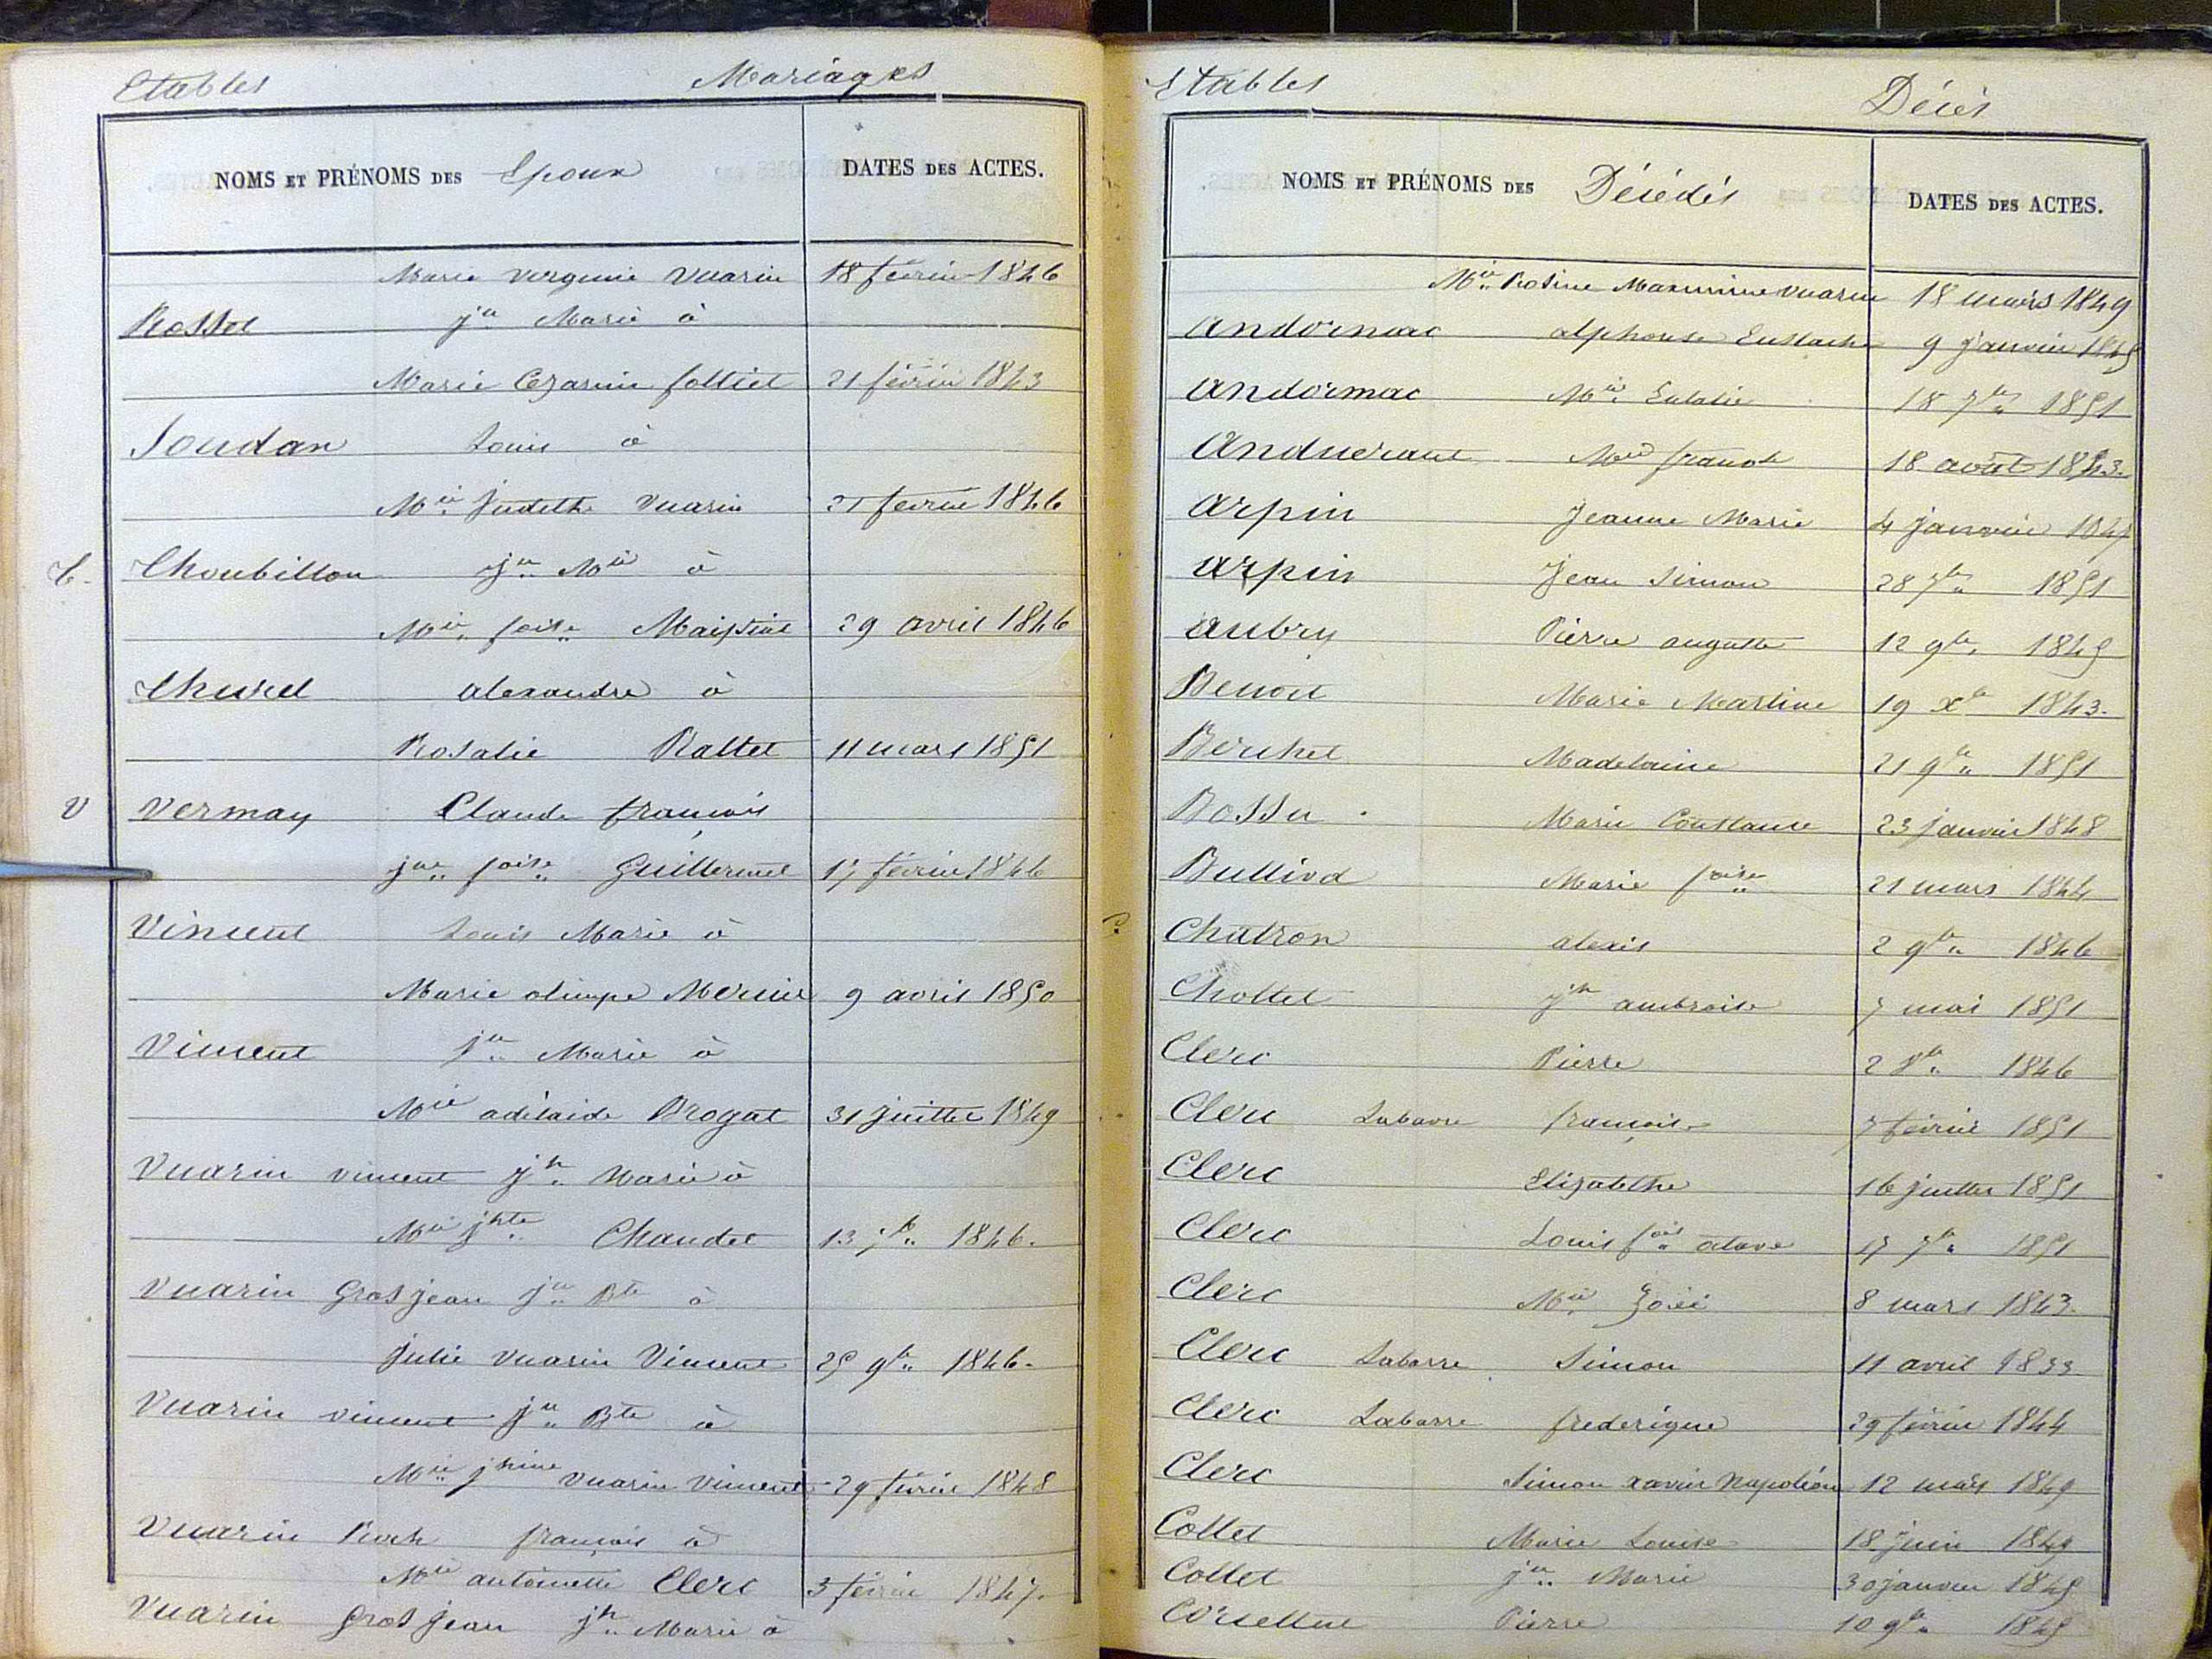 Etables Mariages
NOMS ET PRÉNOMS DES Epoux DATES DES ACTES.
Marie Virginie Vuarin 18 février 1846
Rosset jn Marie à
Marie Cezarine folliet 21 février 1843
Soudan Louis à
Mie Judith Vuarin 21 fevrier 1846
T. Thoubillon jn Mie à
Mie foise 29 avril 1846
Thurel alexandre à
Rosalie Rattet 11 mars 1851
V Vermay Claude françois
jne foise Guillermet 17 février 1846
Vincent Louis Marie à
Marie olimpe Mercier 9 avril 1850
Vincent jn Marie à
Mie adélaide Brogat 31 juillet 1849
Vuarin vincent jh Marie à
Mie jhte Chaudet 13 7bre 1846.
Vuarin Grosjean jn Bte à
julie Vuarin Vincent 25 9bre 1846.
Vuarin vincent jn Bte à
Mie jhine Vuarin Vincent 29 févrie 1848
Vuarin Roch françois à
Mie antoinette Clerc 3 février 1847.
Vuarin Gros jean jh Marie à
Etables Décès
NOMS ET PRÉNOMS DES Décédés DATES DES ACTES.
Mie Rosine Maximine Vuarin 18 mars 1849
Andormac alphonse Eustache 9 janvier 1845
Andormac Mie Eulalie 18 7bre 1851
Mie 18 août 1843.
Arpin Jeanne Marie 4 janvier 1847
Arpin Jean Simon 28 7bre 1851
Aubry Pierre auguste 12 9bre 1845
Benoit Marie Martine 19 Xbre 1843.
Berchet Madelaine 21 9bre 1851
Bossu Marie Constance 23 janvier 1848
Bulliod Marie foise 21 mars 1844
C. Chatron alexis 2 9bre 1846
Chollet jh ambroise 7 mai 1851
Clerc Pierre 2 8bre 1846
Clerc Labarre françois 7 février 1851
Clerc Elizabethe 16 juillet 1851
Clerc Louis fois 17 7bre 1851
Clerc Mie Zoée 8 mars 1843.
Clerc Labarre Simon 11 avril 1833
Clerc Labarre frederique 29 février 1844
Clerc Simon xavier Napoléon 12 mars 1849
Collet Marie Louise 18 juin 1849
Collet jn Marie 30 janvier 1845
Pierre 10 9bre 1845